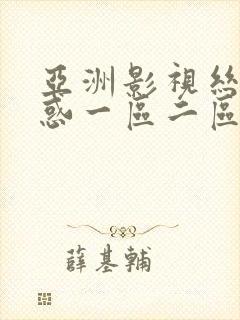 亞洲影視絲
惑一區二區
薛基輔